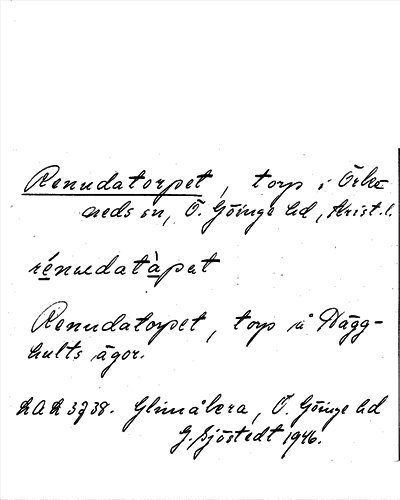 Renudatorpet, torp i Örke-
neds sn, Ö. Göinge hd, Krist. l.
rénudatàpat
Renudatorpet, torp å Hägg-
hults ägor.
Glimåkra, Ö. Göinge hd
G. Sjöstedt 1946.